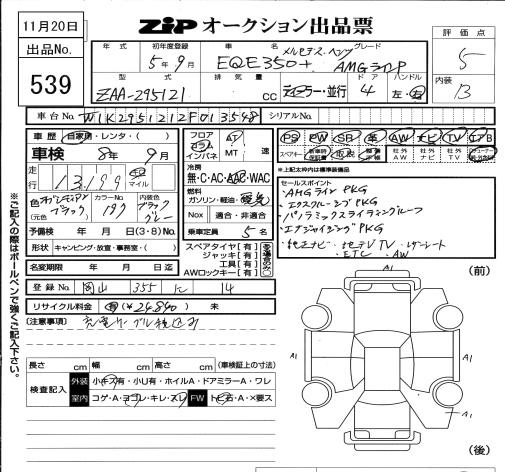 11月20日
ZIP オークション出品票
評価点
5
出品No.
539
年式
初年度登録
5年9月
車名
メルセデス・ベンツ
EQE350+
グレード
AMGライン P
内装
B
型式
ZAA-295121
排気量
cc
ディーラー・並行
ドア
4
ハンドル
左・右
車台No.
W1K2951212F013548
シリアルNo.
車歴
自家用・レンタ・( )
車検
8年9月
走行
13,199
km
マイル
色
オブシディアンブラック
(元色 )
カラーNo.
197
内装色
ブラック
グレー
予備検 年 月 日(3・8)No.
形状
キャンピング・放送・事務室・( )
名変期限 年 月 日迄
フロア
コラム
インパネ
AT
MT
速
冷房
無・C・AC・AAC・WAC
燃料
ガソリン・軽油・電気
Nox
適合・非適合
乗車定員 5 名
スペアタイヤ[有]
ジャッキ[有]
工具[有]
AWロックキー[有]
PS
PW
SR
革
AW
ナビ
TV
エアB
スペアキー
新車時保証書
取説
整備手帳
社外AW
社外ナビ
社外TV
※上記太枠内は標準装備品
セールスポイント
・AMGライン PKG
・エクスクルーシブ PKG
・パノラミックスライディングルーフ
・エアサスペンション PKG
・純正ナビ・地デジTV・レザーシート
・ETC・AW
登録No.
岡山 355 に 14
リサイクル料金
有(¥24,840) 未
(注意事項)
充電ケーブル積込み
※ご記入の際はボールペンで強くご記入下さい。
長さ cm
幅 cm
高さ cm
(車検証上の寸法)
検査記入
外装
小キズ有・小U有・ホイルA・ドアミラーA・ワレ
室内
コゲA・ヨゴレ・キレ・スレ
FW
トビ石・A・×要ス
(前)
A1
A1
A1
A1
(後)